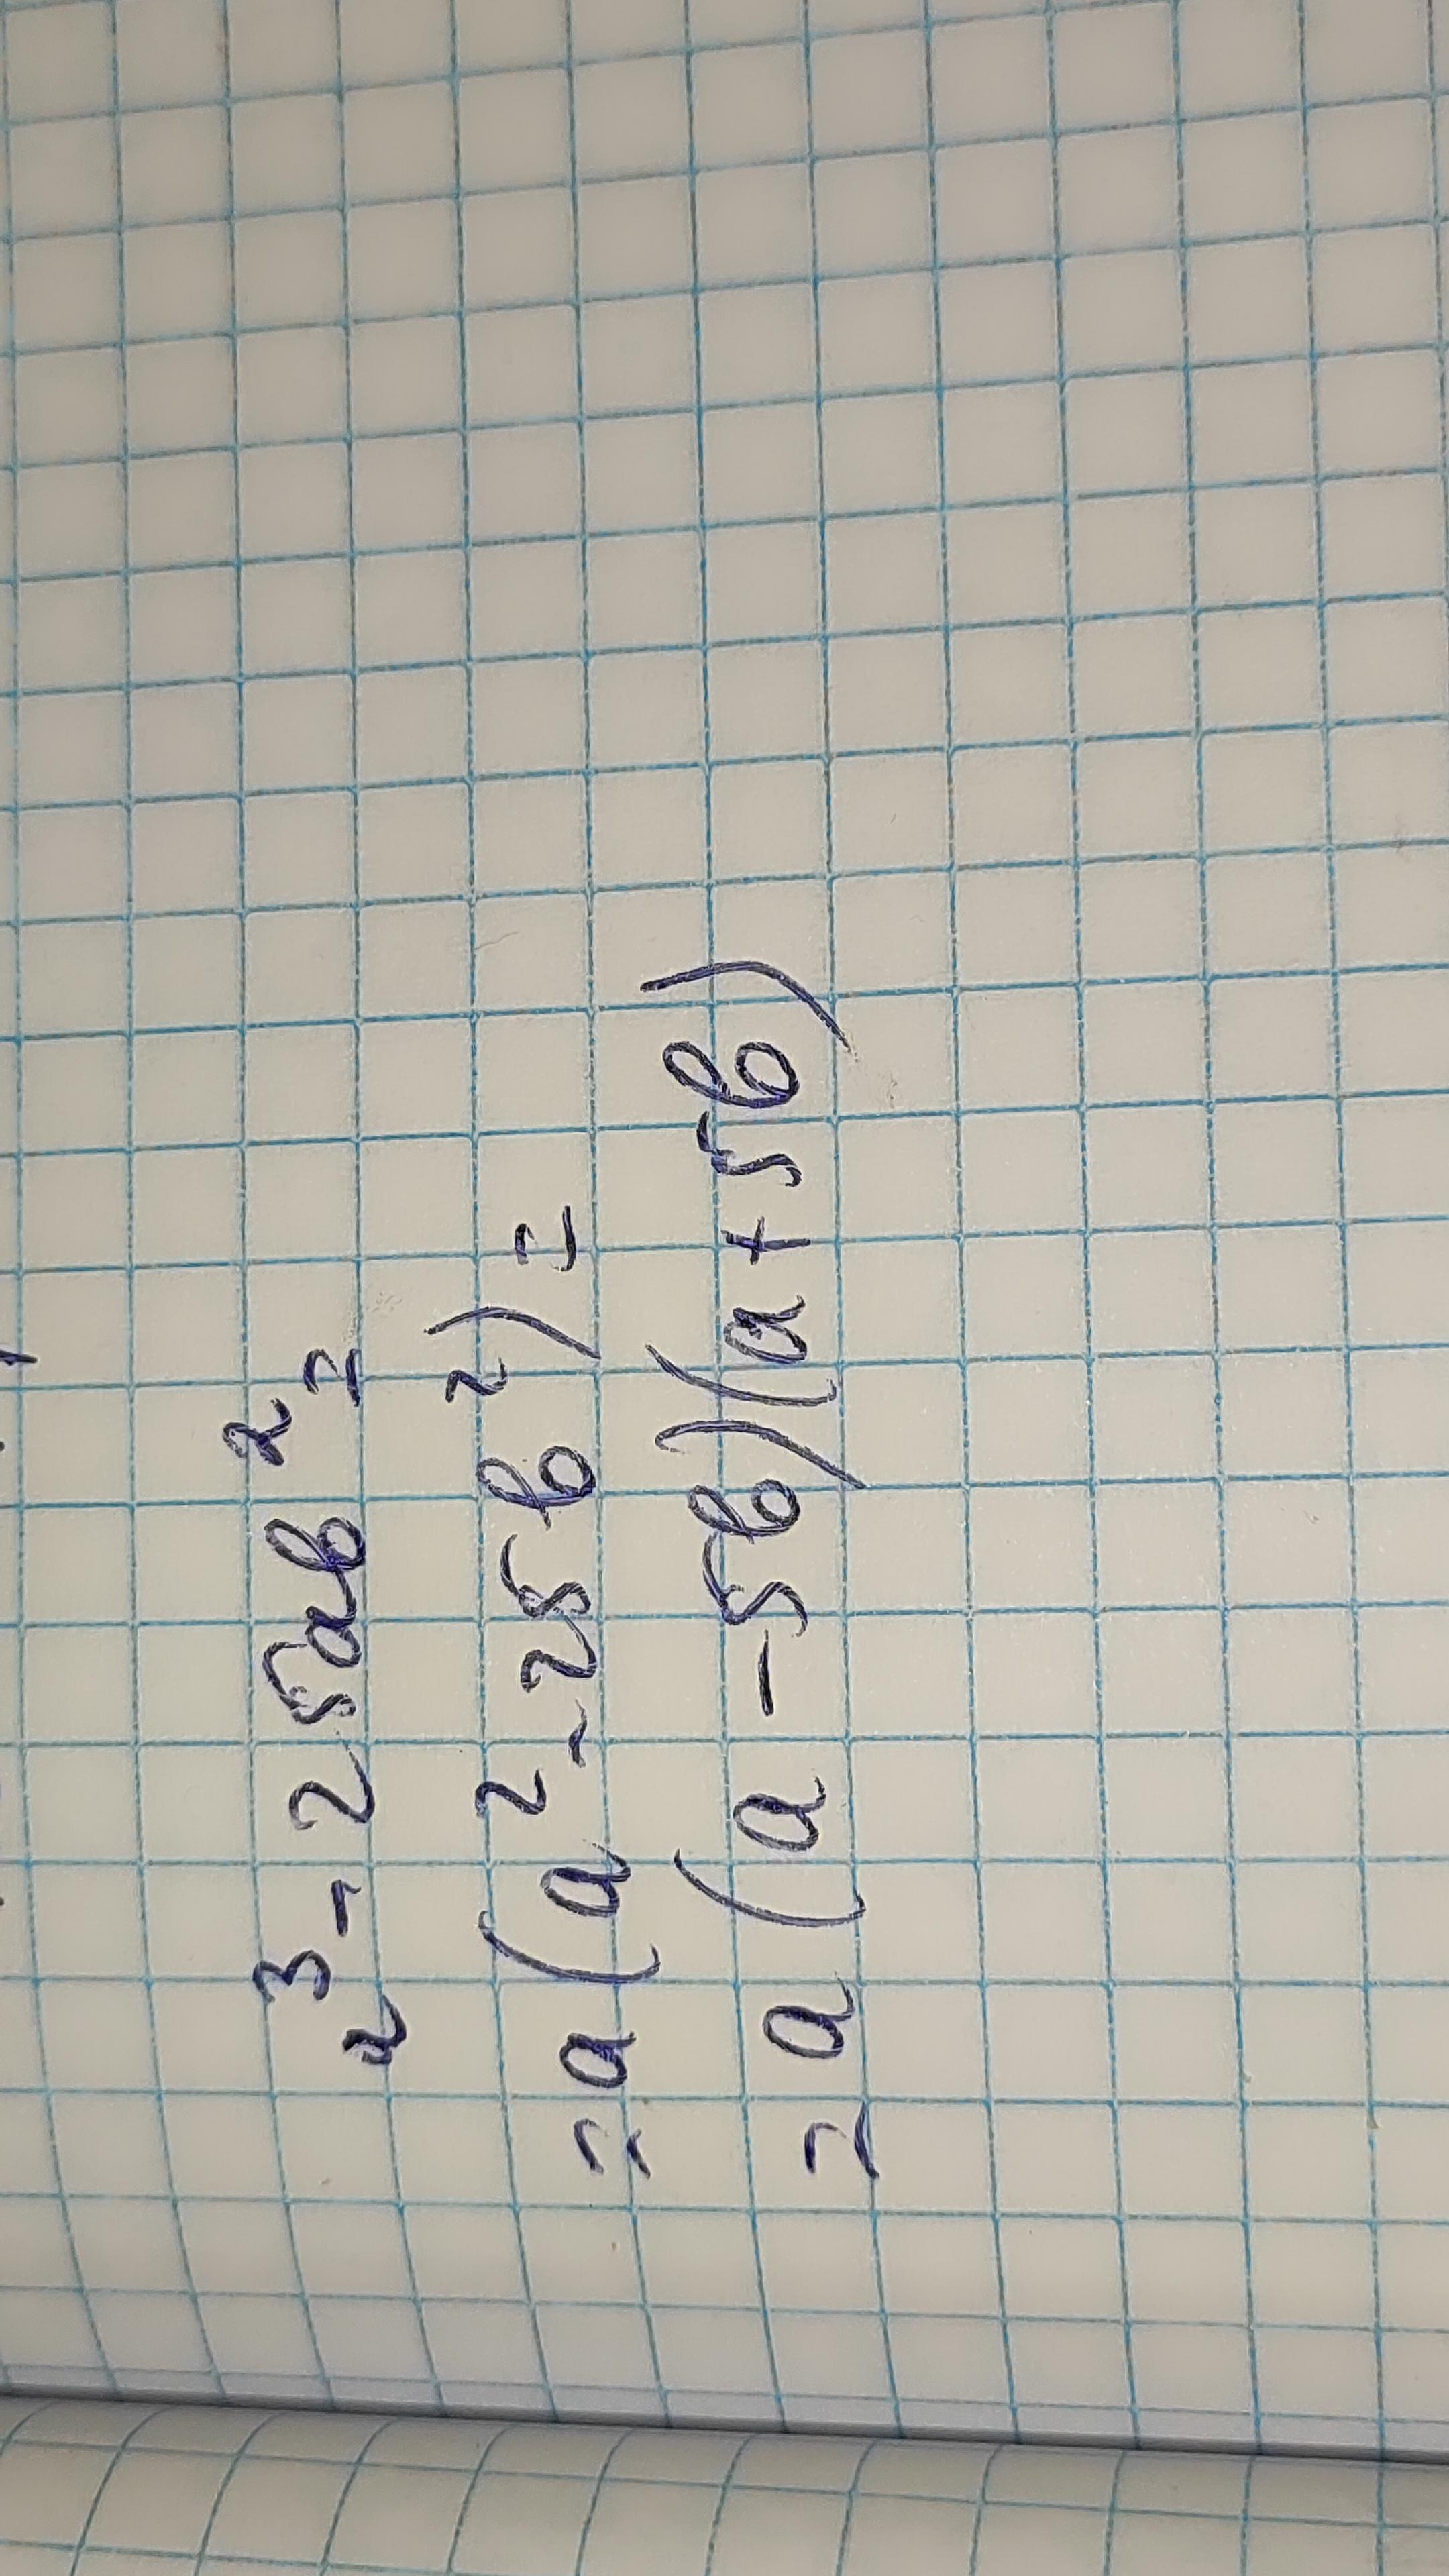 a³-25ab²=
=a(a²-25b²)=
=a(a-5b)(a+5b)